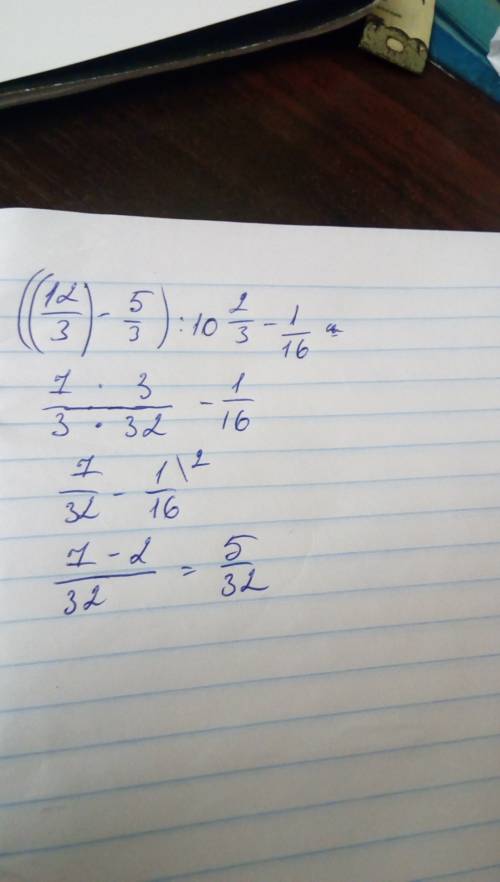 ((12/3) - 5/3) : 10 2/3 - 1/16 =
7 · 3 / 3 · 32 - 1/16
7/32 - 1/16 \2
7 - 2 / 32 = 5/32